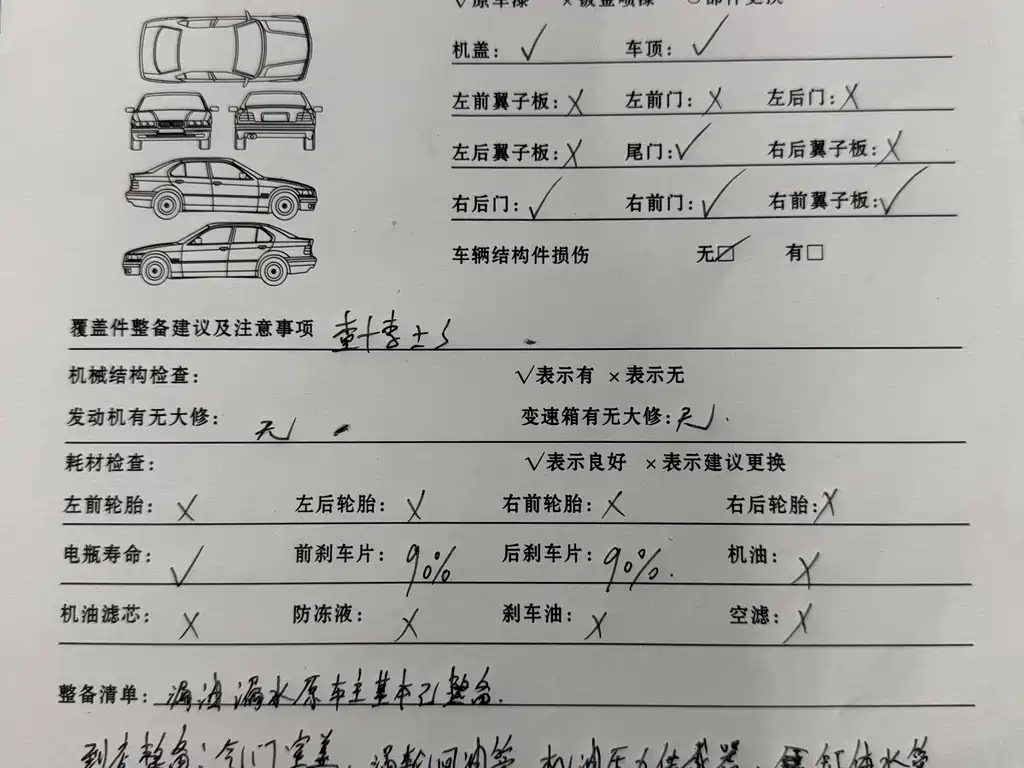 √原车漆 ×钣金喷漆 ○部件更换
机盖：√ 车顶：√
左前翼子板：× 左前门：× 左后门：×
左后翼子板：× 尾门：√ 右后翼子板：×
右后门：√ 右前门：√ 右前翼子板：√
车辆结构件损伤 无☑ 有□
覆盖件整备建议及注意事项
机械结构检查： √表示有 ×表示无
发动机有无大修： 无 变速箱有无大修：无
耗材检查： √表示良好 ×表示建议更换
左前轮胎：× 左后轮胎：× 右前轮胎：× 右后轮胎：×
电瓶寿命：√ 前刹车片：90% 后刹车片：90% 机油：×
机油滤芯：× 防冻液：× 刹车油：× 空滤：×
整备清单：漏油漏水原车主基本已整备.
到店整备：气门室盖、涡轮回油管 机油压力传感器、缸体水管